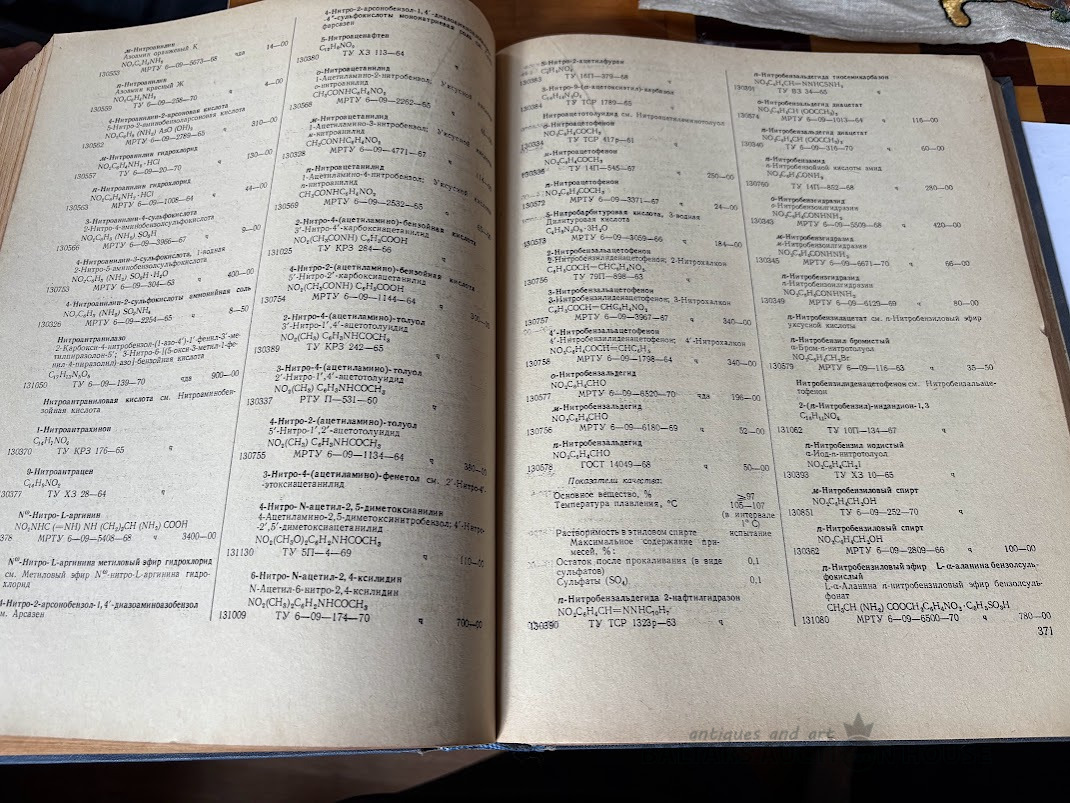 м-Нитроанилин
Азоамин оранжевый К
NO₂C₆H₄NH₂
130553 МРТУ 6—09—5673—68 чда 14—00
п-Нитроанилин
Азоамин красный Ж
NO₂C₆H₄NH₂
130559 ТУ 6—09—258—70 ч 4—00
4-Нитроанилин-2-арсоновая кислота
5-Нитро-2-аминобензоларсоновая кислота
NO₂C₆H₃ (NH₂) AsO (OH)₂
130562 МРТУ 6—09—2789—65 ч 310—00
м-Нитроанилин гидрохлорид
NO₂C₆H₄NH₂·HCl
130557 ТУ 6—09—20—70 ч 130—00
п-Нитроанилин гидрохлорид
NO₂C₆H₄NH₂·HCl
130563 МРТУ 6—09—1008—64 ч 44—00
3-Нитроанилин-4-сульфокислота
2-Нитро-4-аминобензолсульфокислота
NO₂C₆H₃ (NH₂) SO₃H
130566 МРТУ 6—09—3966—67 ч 9—00
4-Нитроанилин-3-сульфокислота, 1-водная
2-Нитро-5-аминобензолсульфокислота
NO₂C₆H₃ (NH₂) SO₃H·H₂O
130753 МРТУ 6—09—304—63 ч 400—00
4-Нитроанилин-2-сульфокислоты аммонийная соль
NO₂C₆H₃ (NH₂) SO₃NH₄
130326 МРТУ 6—09—2254—65 ч 8—50
Нитроантранилазо
2-Карбокси-4-нитробензол-(1-азо-4′)-1′-фенил-3′-ме-
тилпиразолон-5′; 3-Нитро-6-[(5-окси-3-метил-1-фе-
нил-4-пиразолил)-азо]-бензойная кислота
C₁₇H₁₃N₅O₅
131050 ТУ 6—09—139—70 чда 900—00
Нитроантраниловая кислота см. Нитроаминобен-
зойная кислота
1-Нитроантрахинон
C₁₄H₇NO₄
130370 ТУ КРЗ 176—65 ч
9-Нитроантрацен
C₁₄H₉NO₂
130377 ТУ ХЗ 28—64 ч
Nω-Нитро-L-аргинин
NO₂NHC (=NH) NH (CH₂)₃CH (NH₂) COOH
378 МРТУ 6—09—5408—68 ч 3400—00
Nω-Нитро-L-аргинина метиловый эфир гидрохлорид
см. Метиловый эфир Nω-нитро-L-аргинина гидро-
хлорид
4-Нитро-2-арсонобензол-1,4′-диазоаминоазобензол
м. Арсазен
4-Нитро-2-арсонобензол-1,4′-диазоамино
-4″-сульфокислоты мононатриевая соль
5-Нитроаценафтен
C₁₂H₉NO₂
130380 ТУ ХЗ 113—64
о-Нитроацетанилид
1-Ацетиламино-2-нитробензол; Уксусной
о-нитроанилид
CH₃CONHC₆H₄NO₂
130568 МРТУ 6—09—2262—65
м-Нитроацетанилид
1-Ацетиламино-3-нитробензол; Уксусной
м-нитроанилид
CH₃CONHC₆H₄NO₂
130328 МРТУ 6—09—4771—67 ч
п-Нитроацетанилид
1-Ацетиламино-4-нитробензол; Уксусной
п-нитроанилид
CH₃CONHC₆H₄NO₂
130569 МРТУ 6—09—2532—65 ч
2-Нитро-4-(ацетиламино)-бензойная кислота
3′-Нитро-4′-карбоксиацетанилид
NO₂(CH₃CONH) C₆H₃COOH
131025 ТУ КРЗ 284—66 ч
4-Нитро-2-(ацетиламино)-бензойная кислота
5′-Нитро-2′-карбоксиацетанилид
NO₂(CH₃CONH) C₆H₃COOH
130754 МРТУ 6—09—1144—64 ч
2-Нитро-4-(ацетиламино)-толуол
3′-Нитро-1′,4′-ацетотолуидид
NO₂(CH₃) C₆H₃NHCOCH₃
130389 ТУ КРЗ 242—65 ч
3-Нитро-4-(ацетиламино)-толуол
2′-Нитро-1′,4′-ацетотолуидид
NO₂(CH₃) C₆H₃NHCOCH₃
130337 РТУ П—531—60 ч
4-Нитро-2-(ацетиламино)-толуол
5′-Нитро-1′,2′-ацетотолуидид
NO₂(CH₃) C₆H₃NHCOCH₃
130755 МРТУ 6—09—1134—64 ч 380—00
3-Нитро-4-(ацетиламино)-фенетол см. 2′-Нитро-4′-
-этоксиацетанилид
4-Нитро-N-ацетил-2,5-диметоксианилин
4-Ацетиламино-2,5-диметоксинитробензол; 4′-Нитро-
-2′,5′-диметоксиацетанилид
NO₂(CH₃O)₂C₆H₂NHCOCH₃
131130 ТУ 5П—4—69 ч 110—00
6-Нитро-N-ацетил-2,4-ксилидин
N-Ацетил-6-нитро-2,4-ксилидин
NO₂(CH₃)₂C₆H₂NHCOCH₃
131009 ТУ 6—09—174—70 ч 700—00
5-Нитро-2-ацетилфуран
130383 ТУ 16П—379—68 ч
130384 ТУ ТСР 1789—65 ч
Нитроацетотолуидид см. Нитроацетиламинотолуол
о-Нитроацетофенон
NO₂C₆H₄COCH₃
130334 ТУ ТСР 417р—61 ч
м-Нитроацетофенон
NO₂C₆H₄COCH₃
ТУ 14П—545—67 ч 250—00
п-Нитроацетофенон
NO₂C₆H₄COCH₃
130572 МРТУ 6—09—3371—67 ч 24—00
5-Нитробарбитуровая кислота, 3-водная
Дилитуровая кислота
C₄H₃N₃O₅·3H₂O
130573 МРТУ 6—09—3059—66 ч 184—00
2-Нитробензальацетофенон
2-Нитробензилиденацетофенон; 2-Нитрохалкон
C₆H₅COCH=CHC₆H₄NO₂
130756 ТУ 79П—898—63 ч
3-Нитробензальацетофенон
3-Нитробензилиденацетофенон; 3-Нитрохалкон
C₆H₅COCH=CHC₆H₄NO₂
130757 МРТУ 6—09—3967—67 ч 340—00
4′-Нитробензальацетофенон
4′-Нитробензилиденацетофенон; 4′-Нитрохалкон
NO₂C₆H₄COCH=CHC₆H₅
130758 МРТУ 6—09—1798—64 ч 340—00
о-Нитробензальдегид
NO₂C₆H₄CHO
130577 МРТУ 6—09—6520—70 чда 196—00
м-Нитробензальдегид
NO₂C₆H₄CHO
130756 МРТУ 6—09—6180—69 ч 52—00
п-Нитробензальдегид
NO₂C₆H₄CHO
130578 ГОСТ 14049—68 ч 50—00
Показатели качества:
Основное вещество, % ≥97
Температура плавления, °C 105—107
(в интервале
1° C)
Растворимость в этиловом спирте испытание
Максимальное содержание при-
месей, %:
Остаток после прокаливания (в виде 0,1
сульфатов)
Сульфаты (SO₄) 0,1
п-Нитробензальдегида 2-нафтилгидразон
NO₂C₆H₄CH=NNHC₁₀H₇
130390 ТУ ТСР 1323р—63 ч
п-Нитробензальдегида тиосемикарбазон
NO₂C₆H₄CH=NNHCSNH₂
130391 ТУ ВЗ 34—65 ч
о-Нитробензальдегид диацетат
NO₂C₆H₄CH (OOCCH₃)₂
130574 МРТУ 6—09—1013—64 ч 116—00
п-Нитробензальдегид диацетат
NO₂C₆H₄CH (OOCCH₃)₂
130346 ТУ 6—09—316—70 ч 60—00
п-Нитробензамид
п-Нитробензойной кислоты амид
NO₂C₆H₄CONH₂
130760 ТУ 14П—852—68 ч 280—00
о-Нитробензгидразид
о-Нитробензоилгидразин
NO₂C₆H₄CONHNH₂
130343 МРТУ 6—09—5509—68 ч 420—00
м-Нитробензгидразид
м-Нитробензоилгидразин
NO₂C₆H₄CONHNH₂
130345 МРТУ 6—09—6671—70 ч 66—00
п-Нитробензгидразид
п-Нитробензоилгидразин
NO₂C₆H₄CONHNH₂
130349 МРТУ 6—09—6129—69 ч 80—00
п-Нитробензилацетат см. п-Нитробензиловый эфир
уксусной кислоты
п-Нитробензил бромистый
α-Бром-п-нитротолуол
NO₂C₆H₄CH₂Br
130579 МРТУ 6—09—116—63 ч 35—50
Нитробензилиденацетофенон см. Нитробензальаце-
тофенон
2-(п-Нитробензил)-индандион-1,3
C₁₆H₁₁NO₄
131062 ТУ 10П—134—67 ч
п-Нитробензил иодистый
α-Иод-п-нитротолуол
NO₂C₆H₄CH₂I
130393 ТУ ХЗ 10—65 ч
м-Нитробензиловый спирт
NO₂C₆H₄CH₂OH
130851 ТУ 6—09—252—70 ч
п-Нитробензиловый спирт
NO₂C₆H₄CH₂OH
130362 МРТУ 6—09—2809—66 ч 100—00
п-Нитробензиловый эфир L-α-аланина бензолсуль-
фокислый
L-α-Аланина п-нитробензиловый эфир бензолсуль-
фонат
CH₃CH (NH₂) COOCH₂C₆H₄NO₂·C₆H₅SO₃H
131080 МРТУ 6—09—6500—70 ч 780—00
371
antiques and art